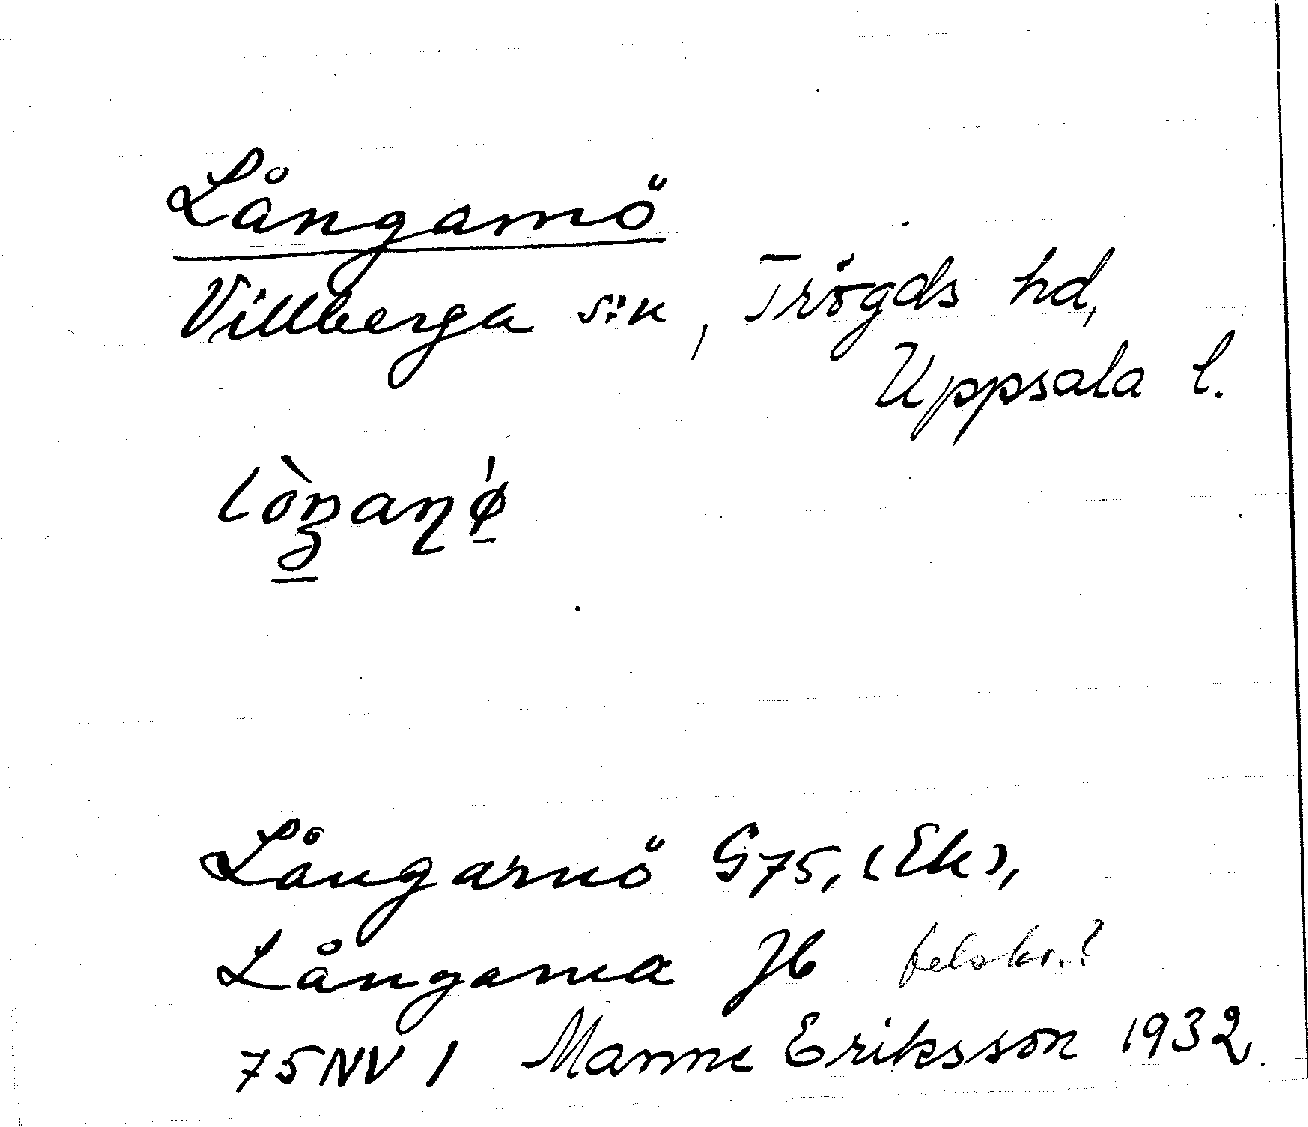 Långarnö
Villberga s:n, Trögds hd,
Uppsala l.
Långarnö G75, (Ek),
Långarna Jb felskr.?
75NV 1 Manne Eriksson 1932.